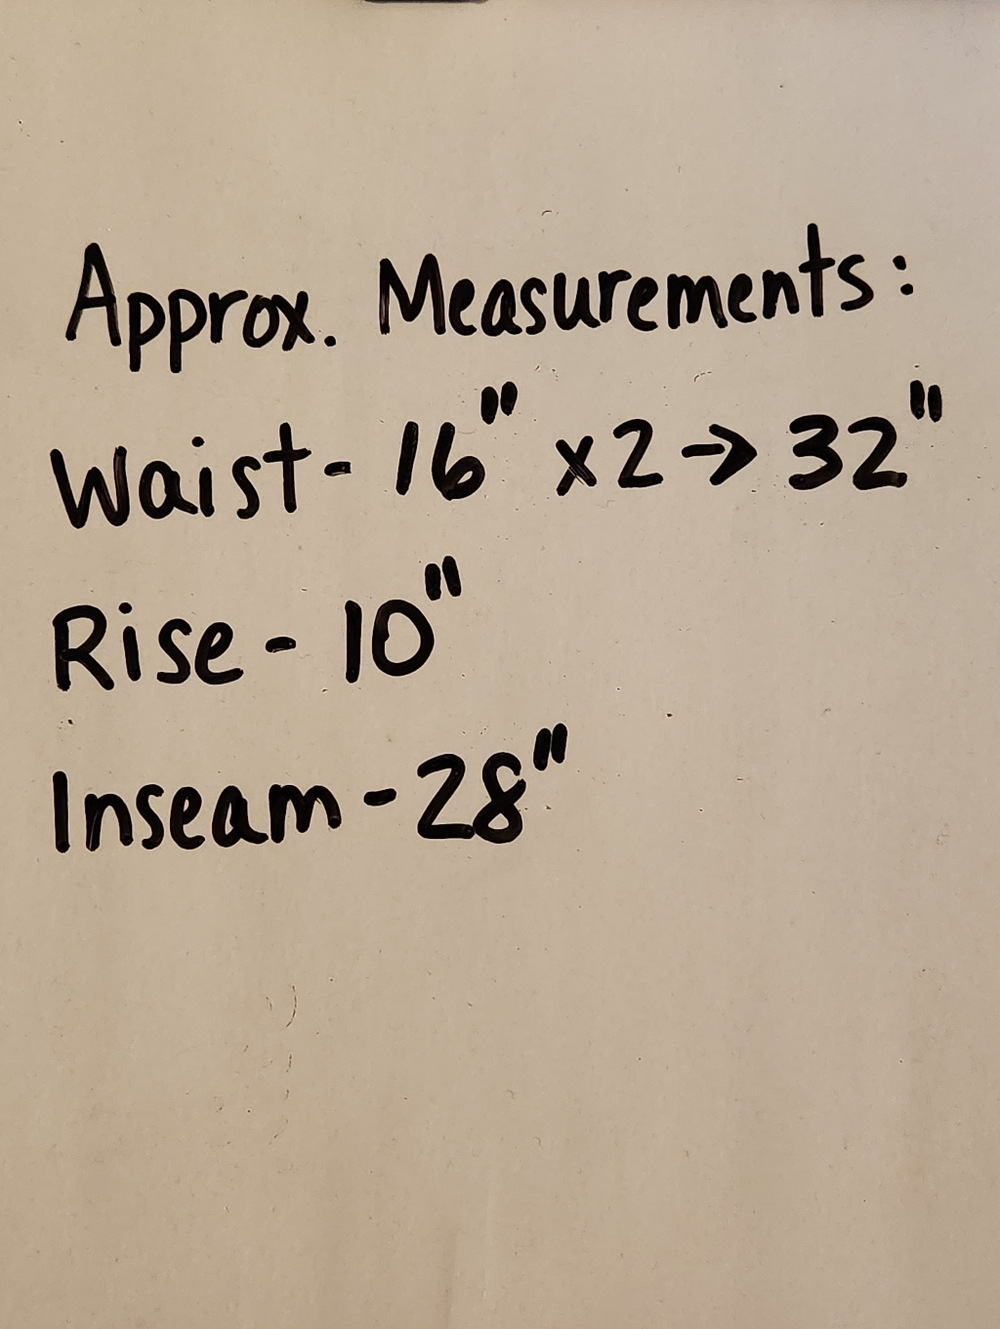 Approx. Measurements:
Waist - 16" x2 → 32"
Rise - 10"
Inseam - 28"